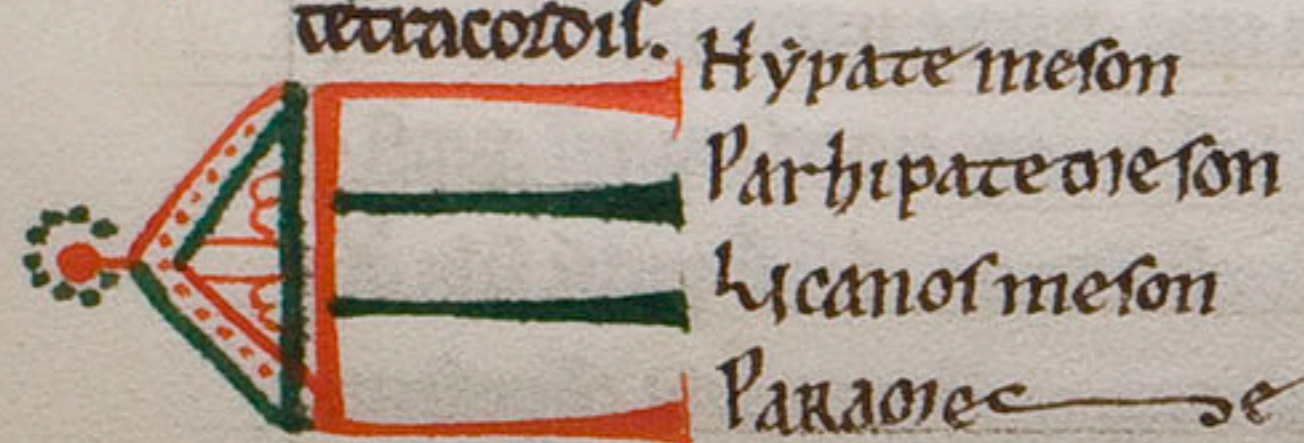 tetracordis.
Hypate meson
Parhipate meson
Licanos meson
Paramese